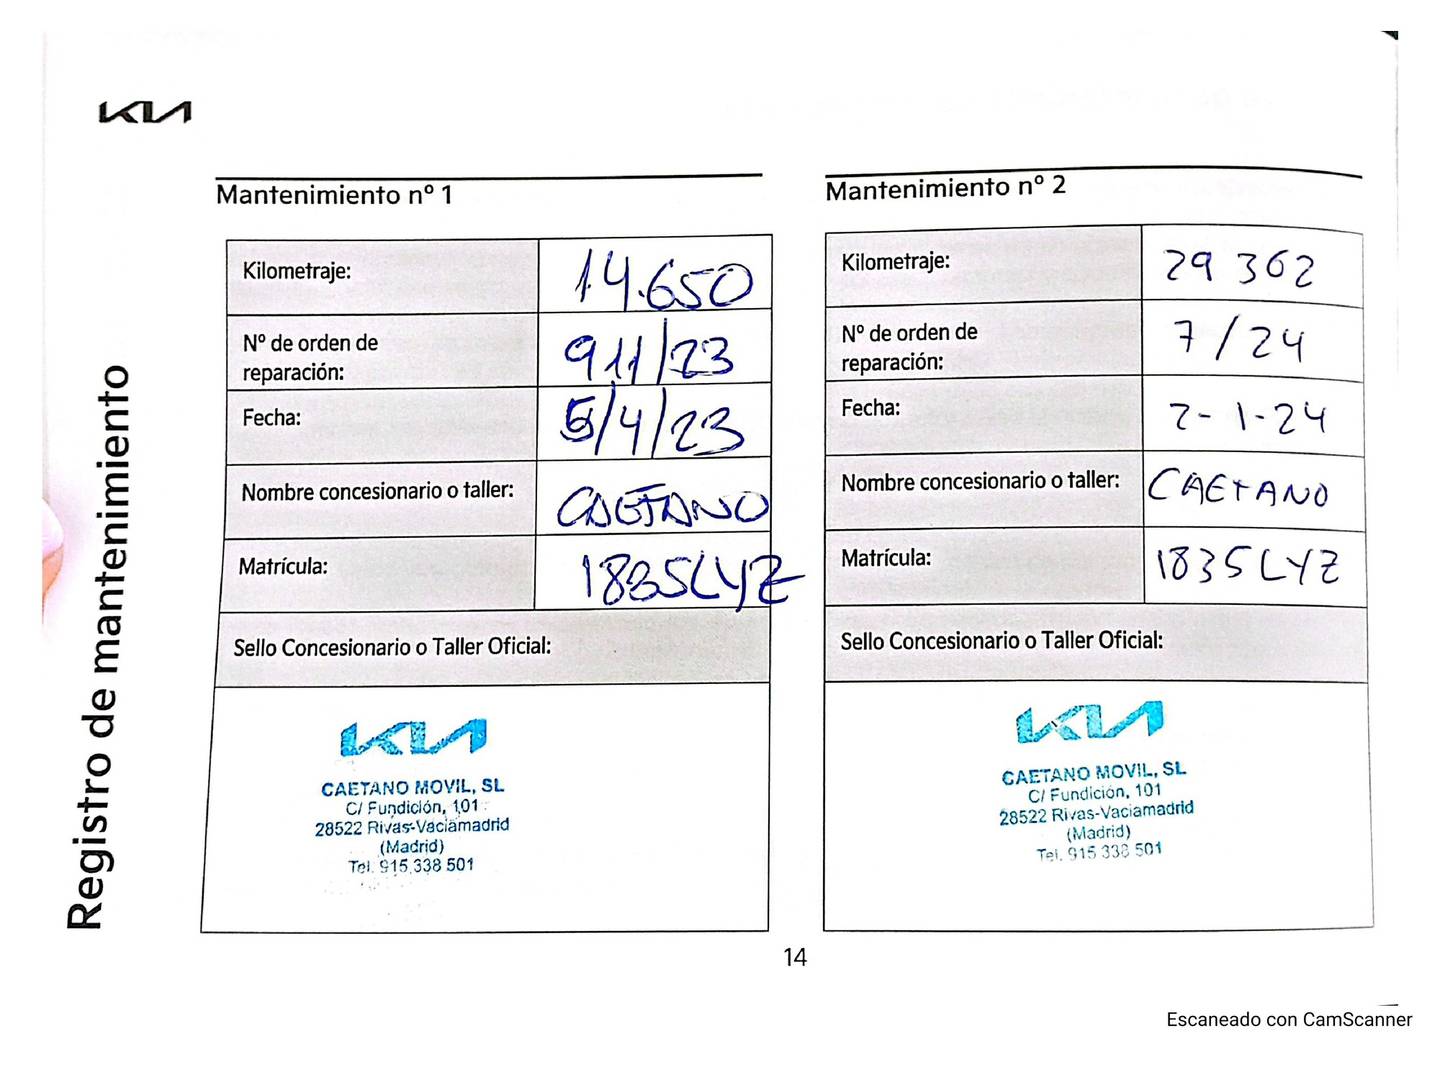 KIA
Registro de mantenimiento
Mantenimiento nº 1
Kilometraje: 14.650
Nº de orden de
reparación: 911/23
Fecha: 5/4/23
Nombre concesionario o taller: CAETANO
Matrícula: 1835LYZ
Sello Concesionario o Taller Oficial:
KIA
CAETANO MOVIL, SL
C/ Fundición, 101
28522 Rivas-Vaciamadrid
(Madrid)
Tel. 915 338 501
Mantenimiento nº 2
Kilometraje: 29 362
Nº de orden de
reparación: 7/24
Fecha: 2-1-24
Nombre concesionario o taller: CAETANO
Matrícula: 1835LYZ
Sello Concesionario o Taller Oficial:
KIA
CAETANO MOVIL, SL
C/ Fundición, 101
28522 Rivas-Vaciamadrid
(Madrid)
Tel. 915 338 501
14
Escaneado con CamScanner